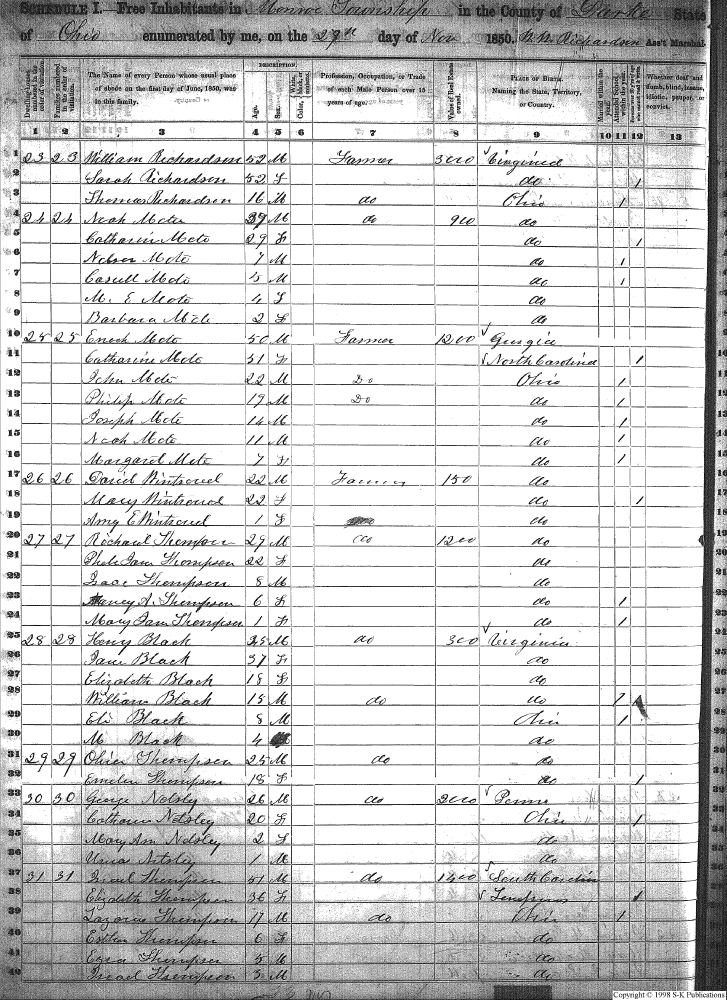 SCHEDULE I.—Free Inhabitants in Monroe Township in the County of Darke State
of Ohio enumerated by me, on the 29th day of Nov 1850. Richardson Ass't Marshal.
DESCRIPTION.
Dwelling-houses numbered in the order of visitation.
Families numbered in the order of visitation.
The Name of every Person whose usual place of abode on the first day of June, 1850, was in this family.
Age.
Sex.
Color, White, black, or mulatto.
Profession, Occupation, or Trade of each Male Person over 15 years of age.
Value of Real Estate owned.
PLACE OF BIRTH. Naming the State, Territory, or Country.
Married within the year.
Whether deaf and dumb, blind, insane, idiotic, pauper, or convict.
1 2 3 4 5 6 7 8 9 10 11 12 13
1 23 23 William Richardson 52 M Farmer 3000 Virginia
2 Sarah Richardson 52 F do 1
3 Thomas Richardson 16 M do Ohio 1
4 24 24 Noah Mote 39 M do 900 do
5 Catharin Mote 29 F do 1
6 Nelson Mote 7 M do 1
7 Mote 5 M do 1
8 M. E Mote 4 F do
9 Barbara Mote 2 F do
10 25 25 Enoch Mote 50 M Farmer 1200 Georgia
11 Catharine Mote 51 F North Carolina 1
12 John Mote 22 M Do Ohio 1
13 Philip Mote 19 M Do do 1
14 Joseph Mote 14 M do 1
15 Noah Mote 11 M do 1
16 Margaret Mote 7 F do 1
17 26 26 David Wintroud 22 M Farmer 150 do
18 Mary Wintroud 22 F do 1
19 Amy E Wintroud 1 F do
20 27 27 Richard Thompson 29 M do 1200 do
21 Phebe Jane Thompson 22 F do
22 Isaac Thompson 8 M do
23 Nancy A. Thompson 6 F do 1
24 Mary Jane Thompson 1 F do 1
25 28 28 Henry Black 35 M do 300 Virginia
26 Jane Black 37 F do
27 Elizabeth Black 18 F do
28 William Black 15 M do do 1
29 Eli Black 8 M Ohio 1
30 M Black 4 do
31 29 29 Oliver Thompson 25 M do do
32 Emeline Thompson 18 F do 1
33 30 30 George Notsley 26 M do 2000 Penna
34 Catharine Notsley 20 F Ohio 1
35 Mary Ann Notsley 2 F do
36 Notsley 1 M do
37 31 31 Israel Thompson 51 M do 1400 South Carolina
38 Elizabeth Thompson 36 F 1
39 Lazarus Thompson 17 M do Ohio 1
40 Esther Thompson 6 F do
41 Ezra Thompson 5 M do
42 Israel Thompson 3 M do
Copyright © 1998 S-K Publications